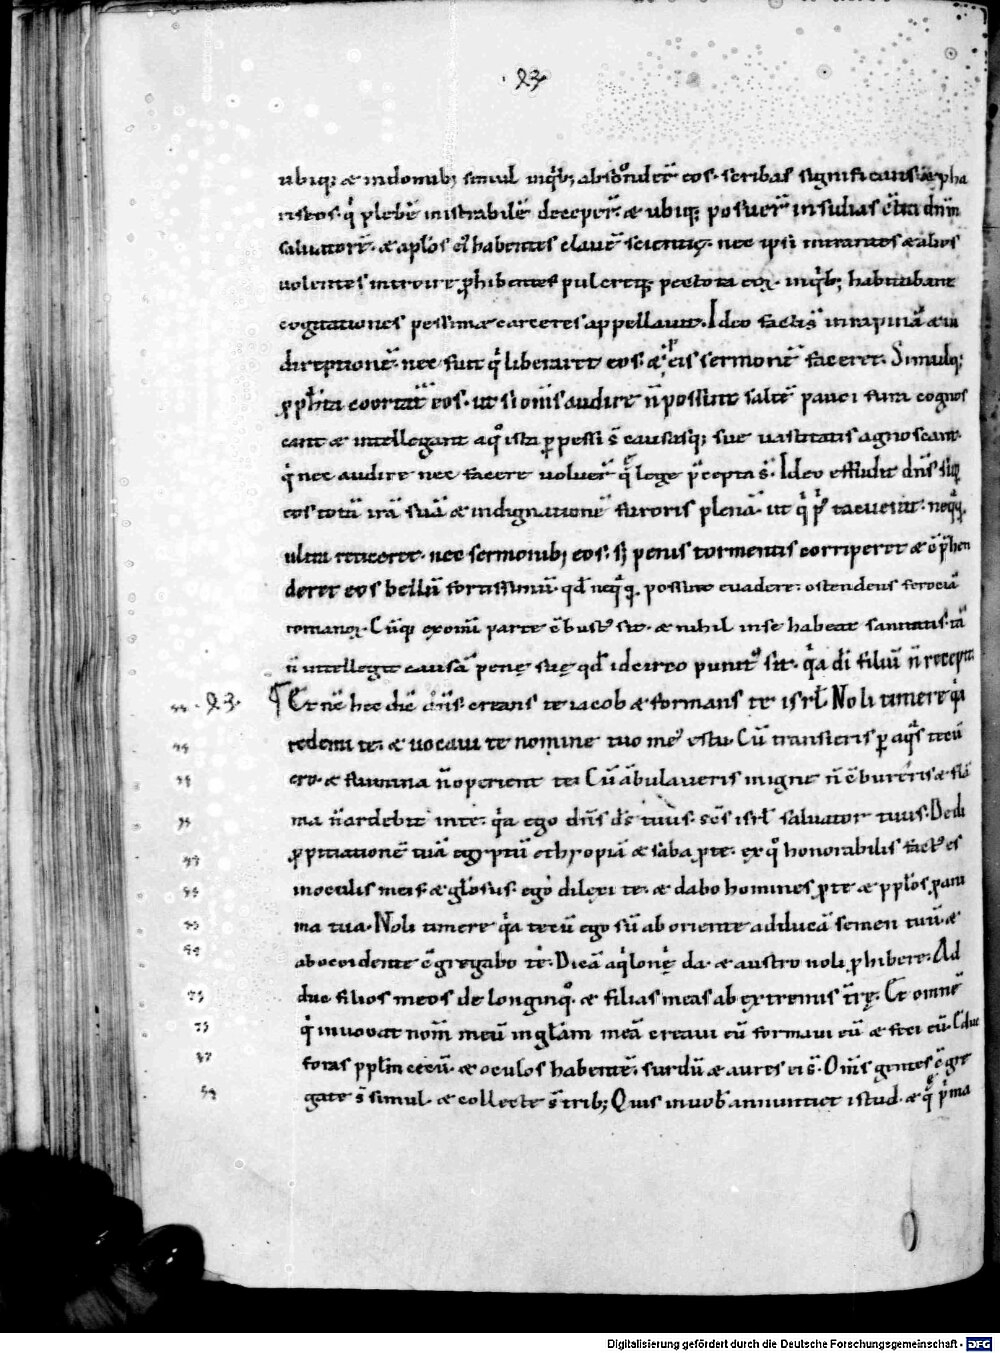 · 93 ·
ubiq; & in domib; simul inqͥb; abscondert eos. scribas significans & pha
riseos. qͥ plebē miserabilē deceper̄. & ubiq; posuer̄ insidias c̄tra dn̄m
saluatorē. & apl̄os eī habentes clauē scientię. nec ipsi intrantes & alios
uolentes introire ꝓhibentes pulcreq; pectora eoꝝ. inqͥb; habitabant
cogitationes pessimæ carceres appellauit. Ideo factis s̄ in rapinā & in
direptionē. nec fuit qͥ liberaret eos. & eis sermonē faceret. Simulq;
ꝓph̄ta coortat̄ eos. ut si om̄s audire n̄ possunt saltē pauci futura cognos
cant & intellegant a qͦ ista ꝑpessi s̄ causasq; sue uastitatis agnoscant.
qͥ nec audire nec facere uoluer̄ q̄ lege p̄cepta s̄. Ideo effudit dn̄s sup
eos totā irā suā & indignationē furoris plenā. ut qͥ p̄ tacuerat. neqͣq
ultra reticeret. nec sermonib; eos. s; penis tormentis corriperet & c̄p̄hen
deret eos bellū fortissimū. qd̄ neqͣq. possint euadere. ostendens ferociā
romanoꝝ. Cūq; ex omi parte c̄bustꝰ sit. & nihil in se habeat sanitatis. tā
n̄ intellegit causā penę suę qd̄ idcirco punitꝰ sit. qͥa di filiū n̄ recepit
· 93 · Et nc̄ hec dic̄ dn̄s. creans te iacob & formans te isrl̄. Noli timere qͥa
redemi te. & uocaui te nomine tuo meꝰ es tu. Cū transieris ꝑ aqͣs tecū
ero. & flumina n̄ operient te. Cū ābulaueris in igne n̄ c̄bureris & flā
ma n̄ ardebit in te. qͥa ego dn̄s ds̄ tuus. sc̄s isrl̄ saluator tuus. Dedi
ꝓpitiationē tuā egyptū ethyopiā & saba ꝓ te. ex qͦ honorabilis factꝰ es
in oculis meis. & gl̄osus. ego dilexi te. & dabo homines ꝓ te & ppl̄os ꝓ ani
ma tua. Noli timere qͥa tecū ego sū ab oriente adducā semen tuū &
ab occidente c̄gregabo te. Dicā aqͥlonę da. & austro noli ꝓhibere. Ad
duc filios meos de longinqͦ. & filias meas ab extremis t̄rę. Et omnē
qͥ inuocat nom̄ meū in gl̄am meā creaui eū formaui eū & feci eū. Educ
foras ppl̄m cecū. & oculos habentē. surdū & aures ei s̄. Om̄s gentes c̄gre
gate s̄ simul. & collecte s̄ trib; Quis in uob̄ annuntiet istud. & q̄ p̄ma
Digitalisierung gefördert durch die Deutsche Forschungsgemeinschaft - DFG